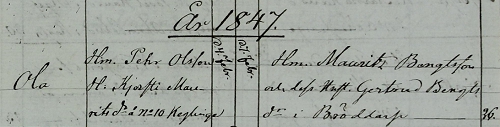 År 1847.
Ola
Hm. Pehr Olsson
H. Kjersti Mau-
rits Dr å No 10 Keglinge
24 Febr.
27 Febr.
Hm. Mauritz Bengtsson
och dess Hust. Gertrud Bengts
dr i Bröddarp
26.